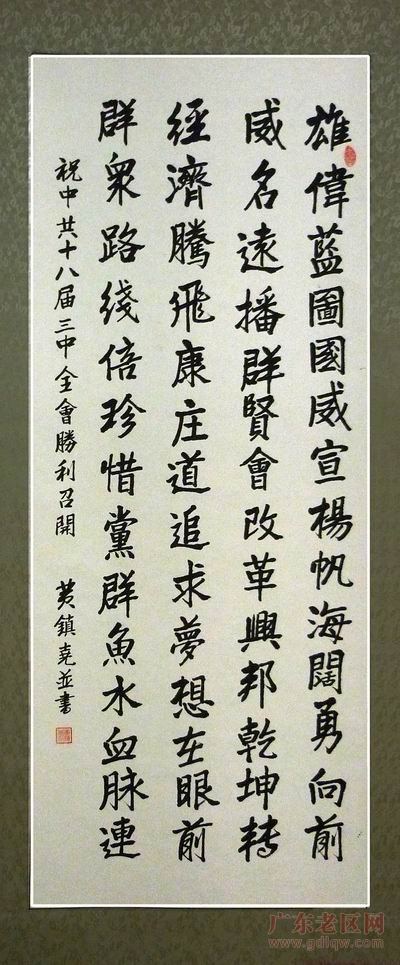 雄偉藍圖國威宣楊帆海闊勇向前
威名遠播群賢會改革興邦乾坤轉
經濟騰飛康庄道追求夢想在眼前
群眾路綫倍珍惜黨群魚水血脉連
祝中共十八届三中全會勝利召開 黄鎮堯並書
广东老区网
www.gdlqw.com